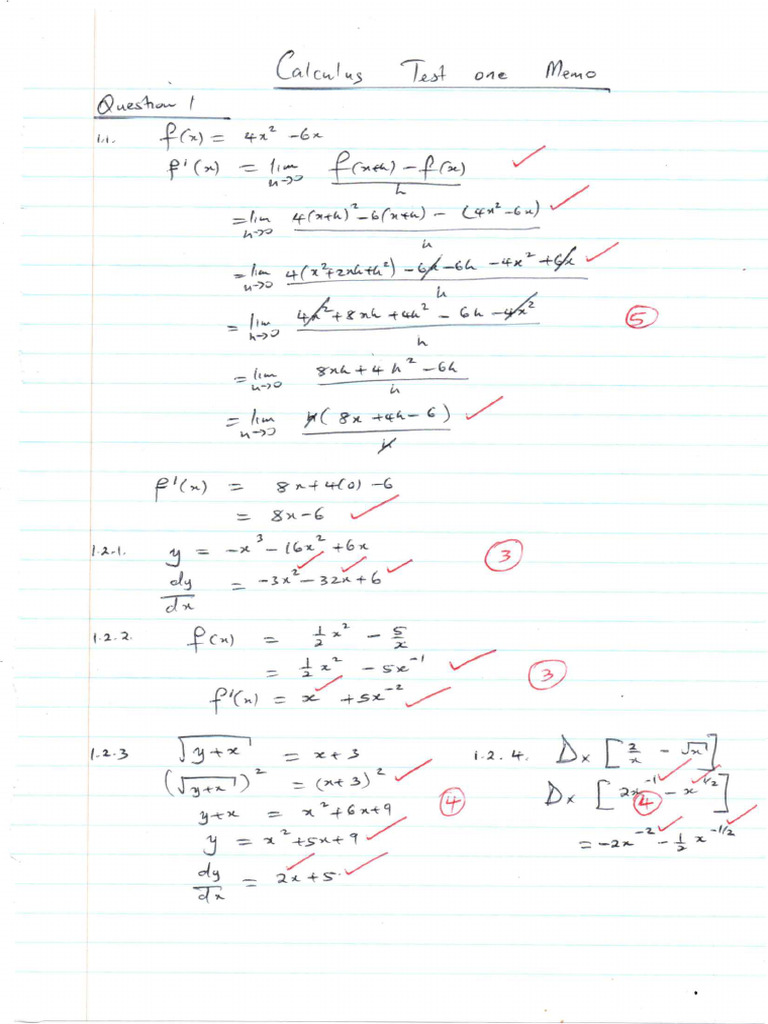 Calculus Test one Memo
Question 1
1.1. f(x) = 4x² - 6x
f'(x) = lim h→0 f(x+h) - f(x) / h
= lim h→0 4(x+h)² - 6(x+h) - (4x² - 6x) / h
= lim h→0 4(x²+2xh+h²) - 6x - 6h - 4x² + 6x / h
= lim h→0 4x² + 8xh + 4h² - 6h - 4x² / h
5
= lim h→0 8xh + 4h² - 6h / h
= lim h→0 h(8x + 4h - 6) / h
f'(x) = 8x + 4(0) - 6
= 8x - 6
1.2.1. y = -x³ - 16x² + 6x
3
dy/dx = -3x² - 32x + 6
1.2.2. f(x) = ½x² - 5/x
= ½x² - 5x⁻¹
3
f'(x) = x + 5x⁻²
1.2.3 √(y+x) = x+3
(√(y+x))² = (x+3)²
y+x = x²+6x+9
4
y = x²+5x+9
dy/dx = 2x+5.
1.2.4. Dx [2/x - √x]
Dx [2x⁻¹ - x^1/2]
4
= -2x⁻² - ½ x^-1/2